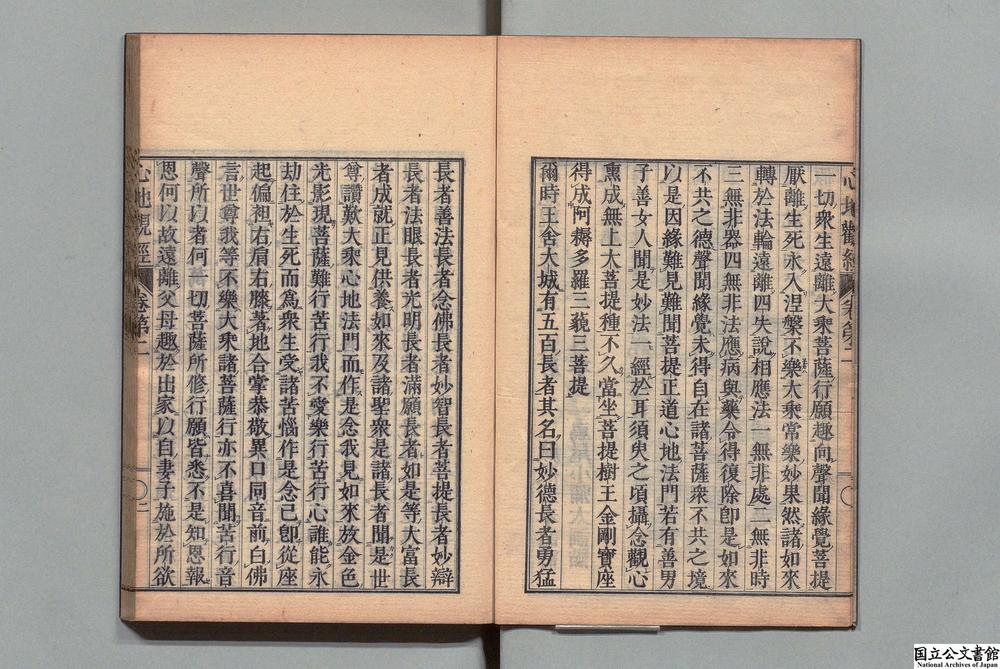 心地觀經 卷第二
一切衆生遠離大乘菩薩行願趣向聲聞緣覺菩提
厭離生死永入涅槃不樂大乘常樂妙果然諸如來
轉於法輪遠離四失說相應法一無非處二無非時
三無非器四無非法應病與藥令得復除卽是如來
不共之德聲聞緣覺未得自在諸菩薩衆不共之境
以是因緣難見難聞菩提正道心地法門若有善男
子善女人聞是妙法一經於耳須臾之頃攝念觀心
熏成無上大菩提種不久當坐菩提樹王金剛寶座
得成阿耨多羅三藐三菩提
爾時王舍大城有五百長者其名曰妙德長者勇猛
長者善法長者念佛長者妙智長者菩提長者妙辯
長者法眼長者光明長者滿願長者如是等大富長
者成就正見供養如來及諸聖衆是諸長者聞是世
尊讚歎大乘心地法門而作是念我見如來放金色
光影現菩薩難行苦行我不愛樂行苦行心誰能永
劫住於生死而爲衆生受諸苦惱作是念已卽從座
起偏袒右肩右膝著地合掌恭敬異口同音前白佛
言世尊我等不樂大乘諸菩薩行亦不喜聞苦行音
聲所以者何一切菩薩所修行願皆悉不是知恩報
恩何以故遠離父母趣於出家以自妻子施於所欲
心地觀經 卷第二
国立公文書館
National Archives of Japan